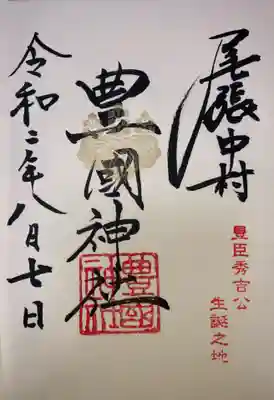 尾張中村
豊臣秀吉公
生誕之地
豊國神社
豊國神社
令和二年八月七日